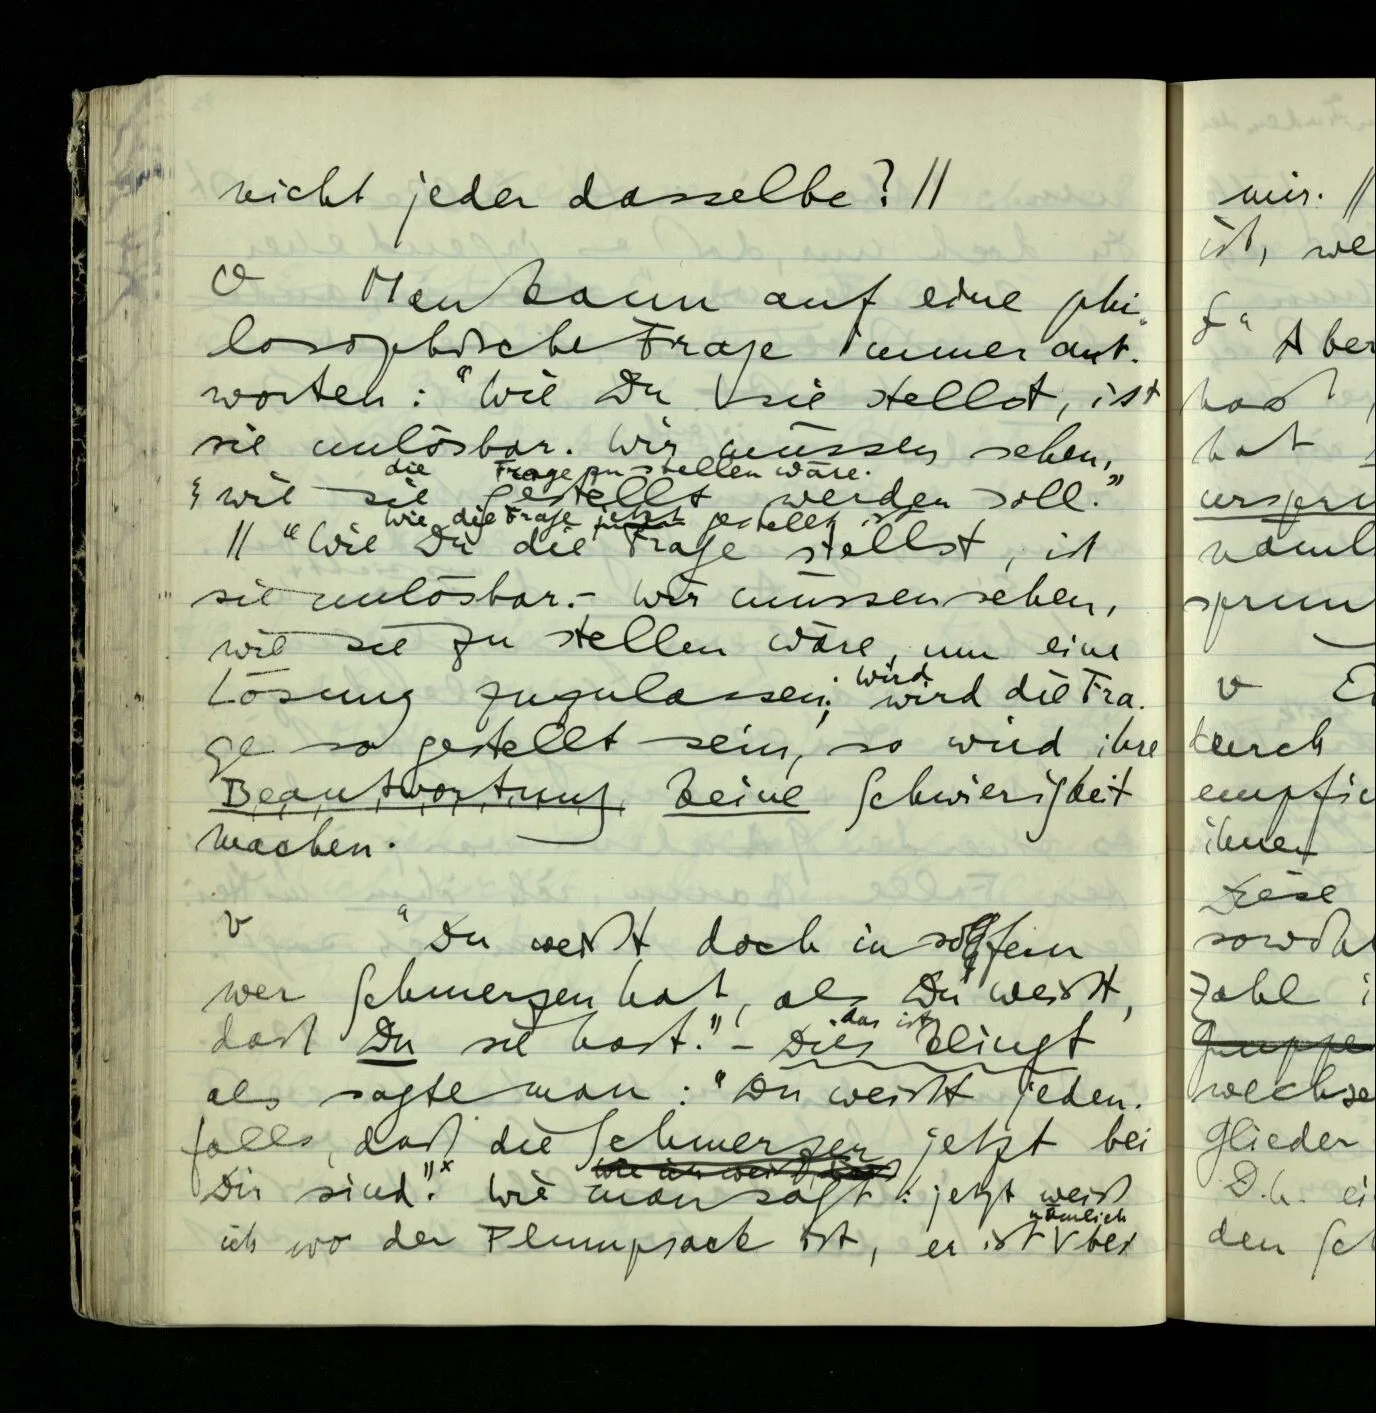 nicht jeder dasselbe? //
∅ Man kann auf eine phi-
losophische Frage immer ant-
worten: “Wie Du sie stellst, ist
sie unlösbar. Wir müssen sehen,
die Frage zu stellen wäre.
wie sie gestellt werden soll.”
wie die Frage jetzt gestellt ist
// “Wie Du die Frage stellst, ist
sie unlösbar. – Wir müssen sehen,
wie sie zu stellen wäre, um eine
Lösung zuzulassen; wird
wird die Fra-
ge so gestellt sein, so wird ihre
Beantwortung keine Schwierigkeit
machen.
v “Du weißt doch insofern
wer Schmerzen hat, als Du weißt,
daß Du sie hast.” – Dies klingt
das ist
als sagte man: “Du weißt jeden-
falls, daß die Schmerzen jetzt bei
Dir sind”.× Wie man sagt: jetzt weiß
nämlich
ich wo der Plumpsack ist, er ist V bei
mir. //
ist, we
" Aber
hast,
hat
urspru
näml
sprun
v Ei
durch
empfin
ihnen
Diese
sowohl
Zahl i
Gruppe
wechse
Glieder
D.h. ei
den Sch